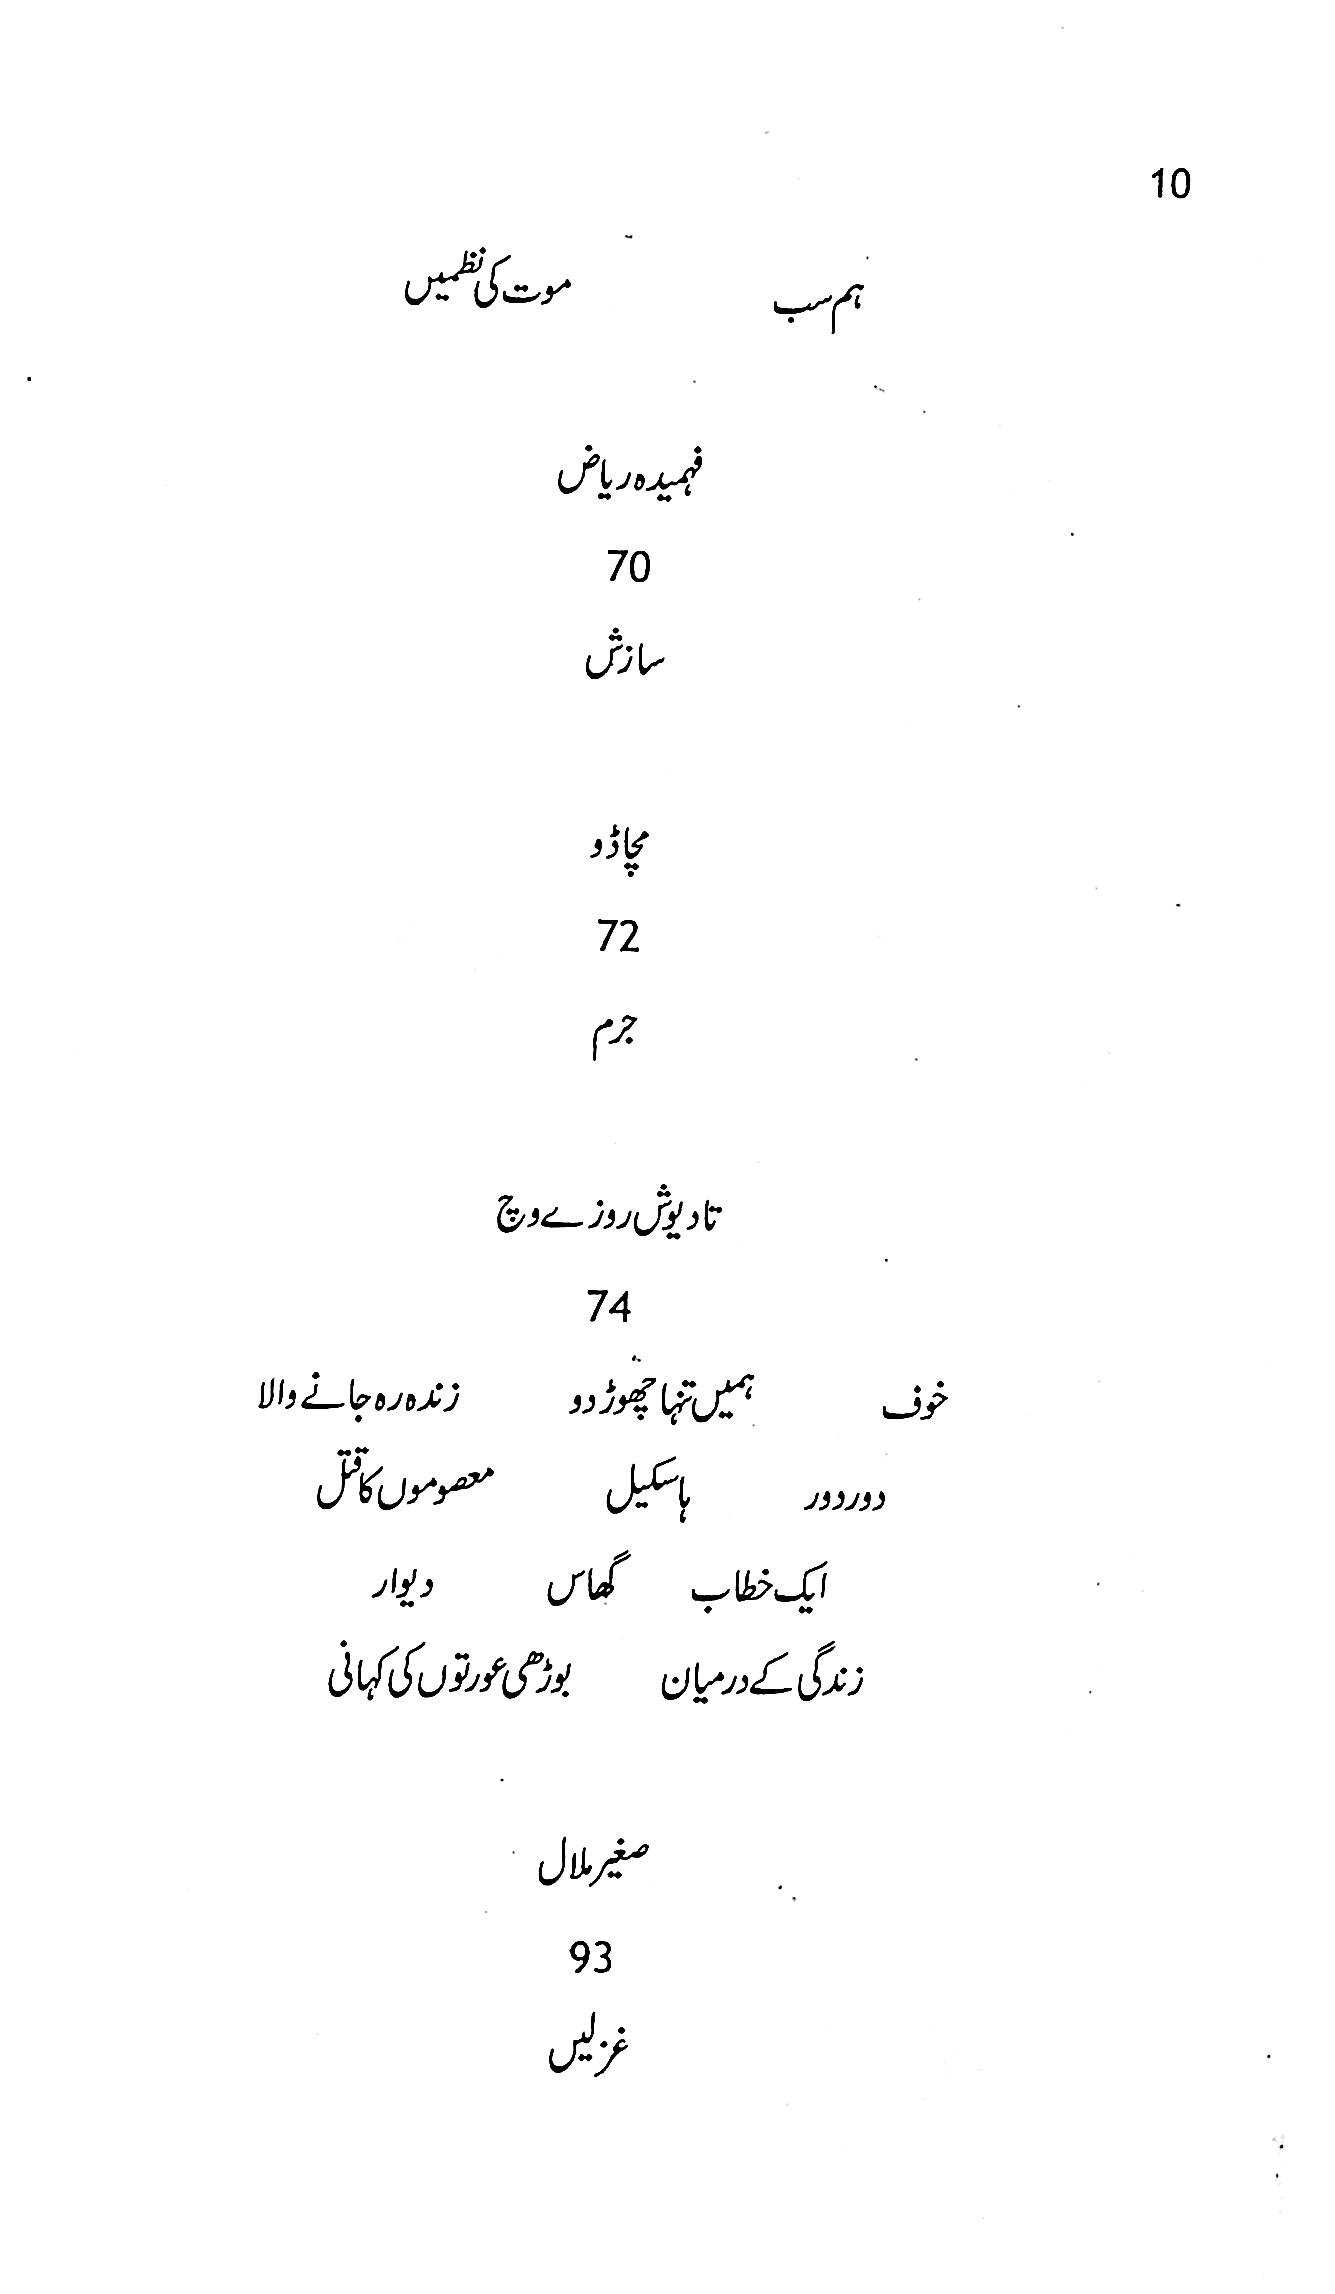 10
ہم سب موت کی نظمیں
فہمیدہ ریاض
70
سازش
مچاڈو
72
جرم
تادیوش روزے وچ
74
خوف ہمیں تنہا چھوڑ دو زندہ رہ جانے والا
دور دور ہاسکیل معصوموں کا قتل
ایک خطاب گھاس دیوار
زندگی کے درمیان بوڑھی عورتوں کی کہانی
صغیر ملال
93
غزلیں